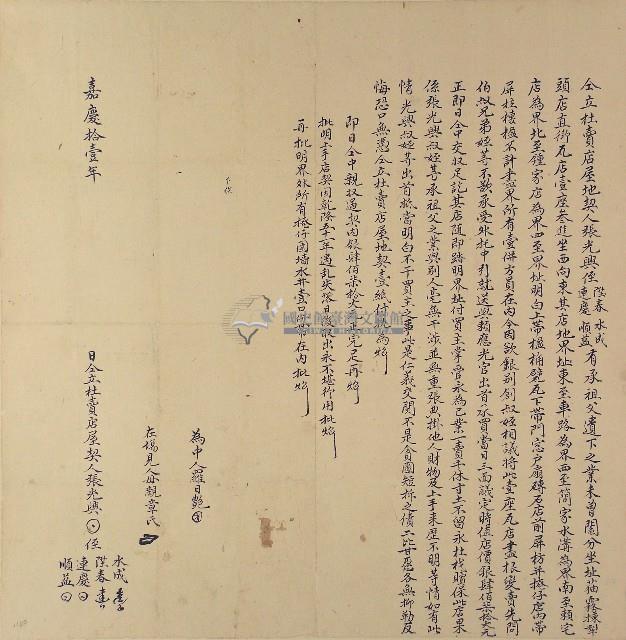 仝立杜賣店屋地契人張光興侄陞春水成連慶順益有承祖父遺下之業未曾鬮分坐址茄霧檺
頭店直街瓦店壹座叁進坐西向東其店地界址東至車路為界西至簡家水溝為界南至賴宅
店為界北至鍾家店為界四至界址明白上帶楹桷甓瓦下帶門窓户扇磚石店前屏枋并店內帶
屏枋樓板不計盡界所有壹併方員在內今因欲銀別創叔姪相議將此壹座瓦店盡根變賣先問
伯叔兄弟姪等不欲承受外托中引就送與賴應光官出首承買當日三面議定時值店價銀肆佰柒拾大元
正即日仝中交收足訖其店隨即踏明界址付買主掌管永為己業一賣千休寸土不留永杜找贖保此店果
係張光興叔姪等承祖父之業與別人毫無干涉並無重張典掛他人財物及上手來歷不明等情如有此
情光興叔姪等出首抵當明白不干買主之事此是仁義交關不是貪圖短折之債二比甘愿各無抑勒反
悔恐口無憑仝立杜賣店屋地契壹紙付執為炤
即日仝中親收過契內銀肆佰柒拾大元正完足再炤
批明上手店契因乾隆五十一年遇亂失落日後取出永不堪行用批炤
再批明界址所有圍墻水井壹口帶在內批炤
為中人羅日艷
在塲見人母親章氏
嘉慶拾壹年 日仝立杜賣店屋契人張光興侄
水成
陞春
連慶
順益
國史館臺灣文獻館